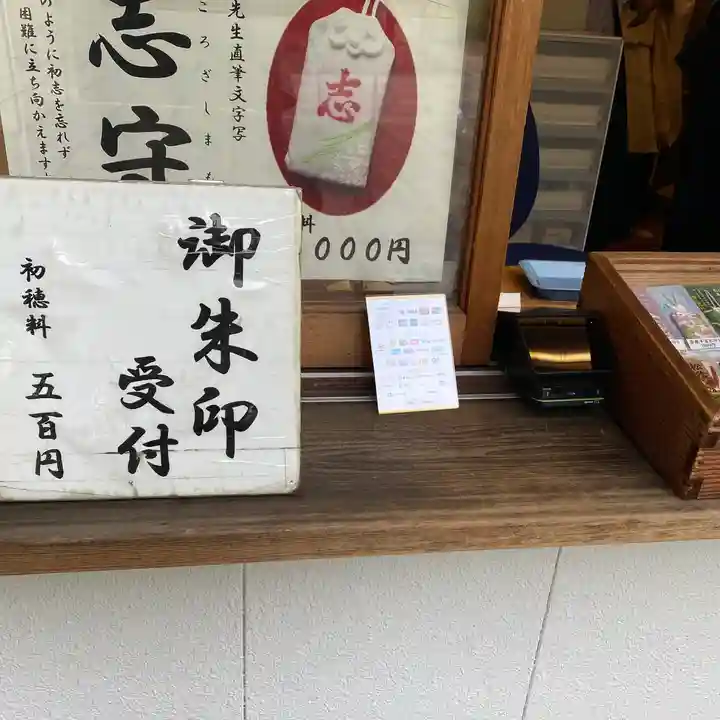 先生直筆文字写
志守
ころざしまも
のように初志を忘れず
困難に立ち向かえます
志
料
000円
御朱印
受付
初穂料 五百円